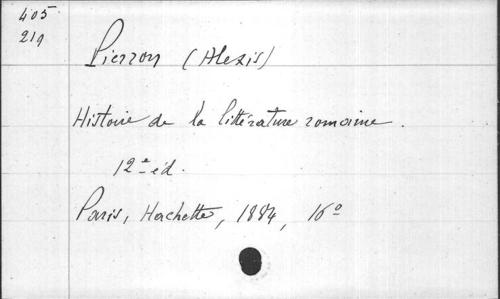 405
219
Pierron (Alexis)
Histoire de la littérature romaine.
12e éd.
Paris, Hachette, 1884, 16°